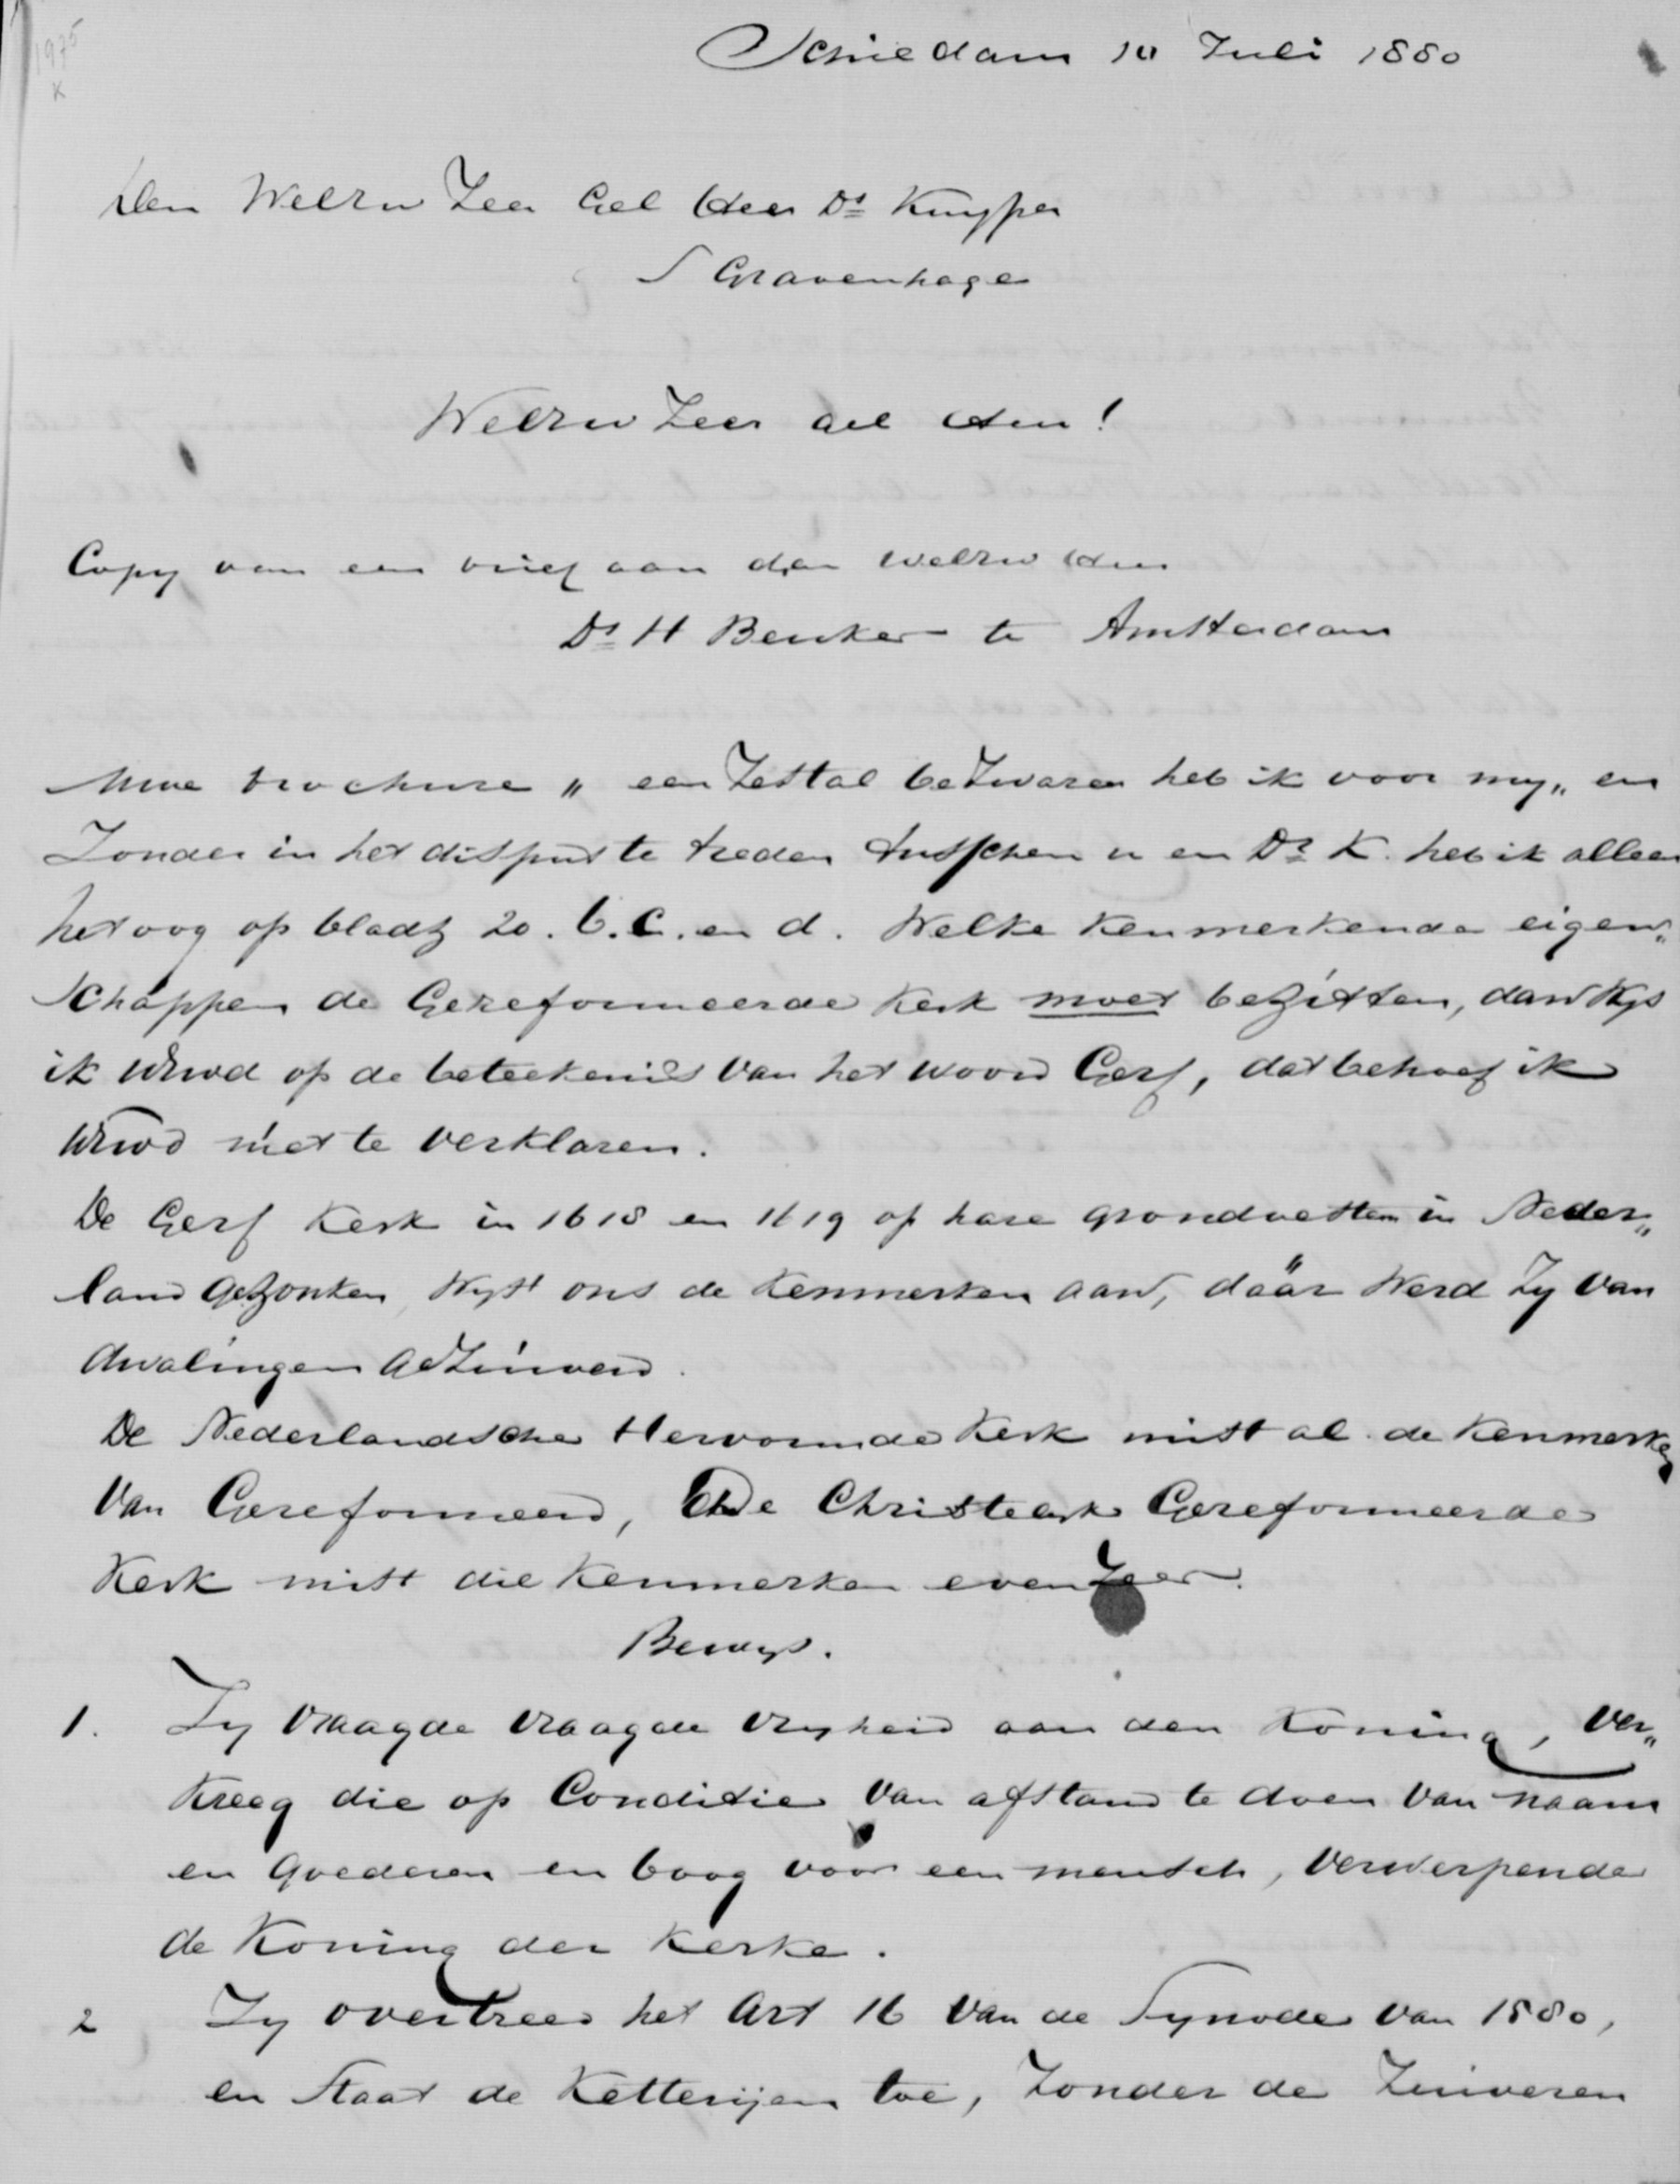 1975
x
Schiedam 10 Juli 1880
Den Weerw Zeer Gel Heer Dr Kuyper
S Gravenhage
Weerw Zeer Gel Heer!
Copy van een brief aan den weerw Heer
Ds H Beuker te Amsterdam
Uwe brochure „ een Zestal bezwaren heb ik voor my „ en
Zonder in het dispuut te treden tusschen u en Dr K. heb ik alleen
het oog op bladz 20. b. c. en d. Welke kenmerkende eigen„
schappen de Gereformeerde Kerk moet bezitten, dan wys
ik Uwerw op de beteekenis van het woord Gerf, dat behoef ik
Uwerw niet te verklaren.
De Gerf Kerk in 1618 en 1619 op hare grondvesten in Neder„
land gezonken, wyst ons de kenmerken aan, däar werd Zy van
dwalingen gezuiverd.
De Nederlandsche Hervormde Kerk mist al de kenmerken
van Gereformeerd, De Christelyk Gereformeerde
Kerk mist die kenmerken even Zeer.
Bewys.
1. Zy vraagde vraagde vryheid aan den Koning, ver„
kreeg die op Conditie van afstand te doen van naam
en goederen en boog voor een mensch, verwerpende
de Koning der Kerke.
2 Zy overtreed het Art 16 van de Synode van 1580,
en staat de Ketterijen toe, Zonder de Zuiveren